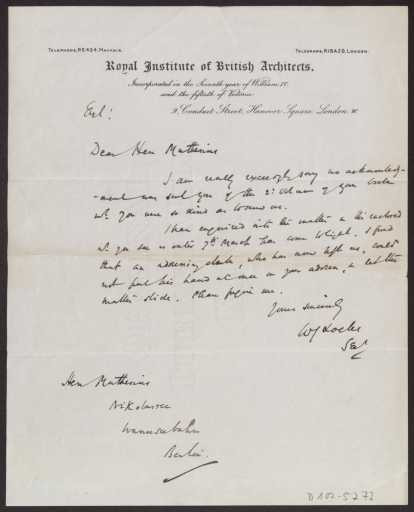 TELEPHONE, Nº 434, MAYFAIR.
TELEGRAMS, RIBAZO, LONDON.
Royal Institute of British Architects.
Incorporated in the Seventh year of William IV.
and the fiftieth of Victoria.
9, Conduit Street, Hanover Square, London, W.
Encl:
Dear Herr Muthesius
I am really exceedingly sorry no acknowledg-
-ment was sent you of the 2nd volume of your book
wh. you were so kind as to send us.
I have enquired into the matter & the enclosed
wh. you see is dated 7th March has come to light. I find
that an addressing clerk, who has now left us, could
not put his hand at once on your address, & let the
matter slide. Please forgive me.
Yours sincerely
WJ Locke
Secy
Herr Muthesius
Nikolassee
Wannseebahn
Berlin.
D 102-5273